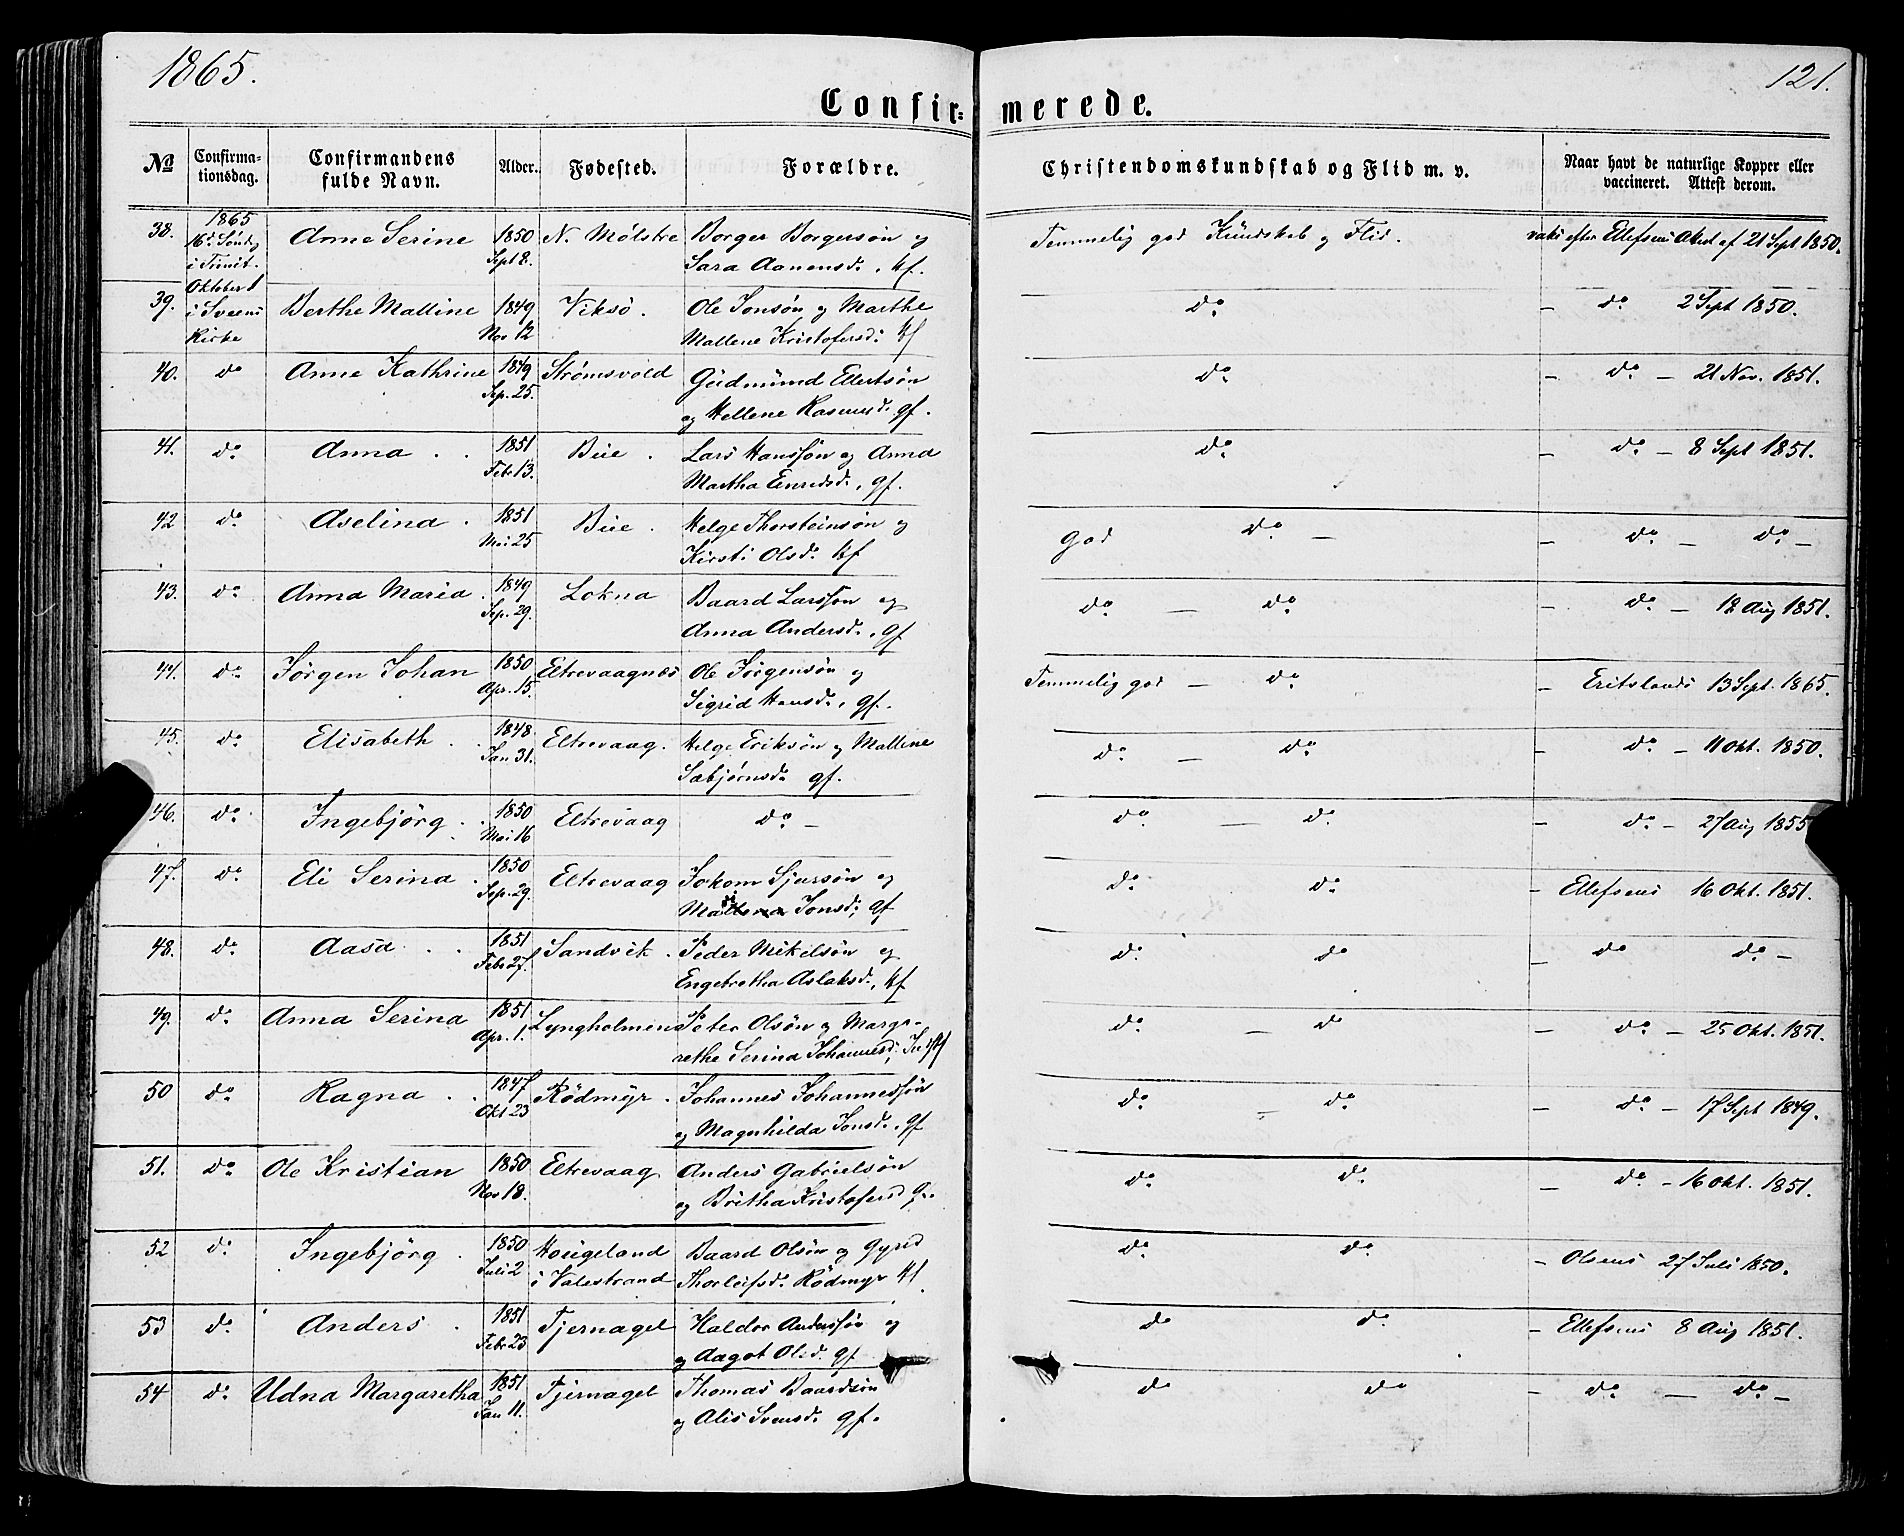 1865.
121.
Confirmerede.
№
Confirmationsdag.
Confirmandens fulde Navn.
Alder.
Fødested.
Forældre.
Christendomskundskab og Flid m. v.
Naar havt de naturlige Kopper eller vaccineret. Attest derom.
38. 1865 16d. Søndg i Trinit. Oktober 1 i Sveens Kirke Anne Serine 1850 Sept 8. N. Mølstre Borger Borgersøn og Sara Aanensd., kf. Temmelig god Kündskab og Flid. vaks efter Ellefsens Attest af 21 Sept 1850.
39. Berthe Malline 1849 Nov 12 Viksø. Ole Jonsøn og Marthe Mallene Kristofersd: kf do - do 2 Sept 1850.
40. do Anne Kathrine 1849 Sep. 25. Strømsvold Güdmünd Ellertsøn og Hellene Rasmusd. gf. do - do - 21 Nov. 1851.
41. do Anna 1851 Febr 13. Büe. Lars Hansson og Anna Martha Enredsd., gf. do - do - 8 Sept 1851.
42 do Aselina. 1851 Mai 25 Büe. Helge Thorsteinsøn og Kirsti Olsd: kf god do - - do - do -
43. do Anna Maria. 1849 Sep. 29. Lokna Baard Larsson og Anna Andersd., gf do - do - do - 18 Aug 1851.
44. do Jørgen Johan 1850 Apr. 15. Eltrevaagnæs Ole Jørgensøn og Sigrid Hansd., gf. Temmelig god - do - Eritslands 13 Sept. 1865.
45. do Elisabeth 1848 Jan 31. Eltrevaag. Helge Eriksøn og Malline Sæbjørnsd. gf. do - do - do - 11 Okt. 1850.
46. do Ingebjörg. 1850 Mai 16 Eltrevaag do - do - do - do - 27 Aug 1855
47. do Eli Serina 1850 Sep. 29. Eltrevaag Jokom Sjursøn og Jonsd; gf do do - Ellefsens 16 Okt. 1851.
48. do Aasa 1851 Febr 27. Sandvik. Peder Mikelsøn og Engebretha Aslaksd., kf do do - do do -
49. do Anna Serina 1851 Apr. 1. Lyngholmen Peter Olsøn og Margarethe Serina Johannesd; do - do - do - 25 Okt. 1851.
50 do Ragna 1847 Okt 23 Rödmyr. Johannes Johannesson og Magnhilda Jonsd., gf do - do - do - 17 Sept 1849.
51. do Ole Kristian 1850 Nov 18. Eltrevaag Anders Gabrielsøn og Britha Kristofersd do do - do - 16 Okt. 1851.
52 do Ingebjörg 1850 Juli 2 Houigeland i Valestrand Baard Olsøn og Gyrid Thorleifsd. Rödmyr kf. do do - Olsens 27 Juli 1850.
53 do Anders 1851 Febr 23 Tjernagel Haldor Andersson og og Aagot Olsd. gf do do - Ellefsens 8 Aug 1851.
54 do Udna Margaretha 1851 Jan 11. Tjernagel Thomas Baardsøn og Alis Svensd. gf. do do - do - do -